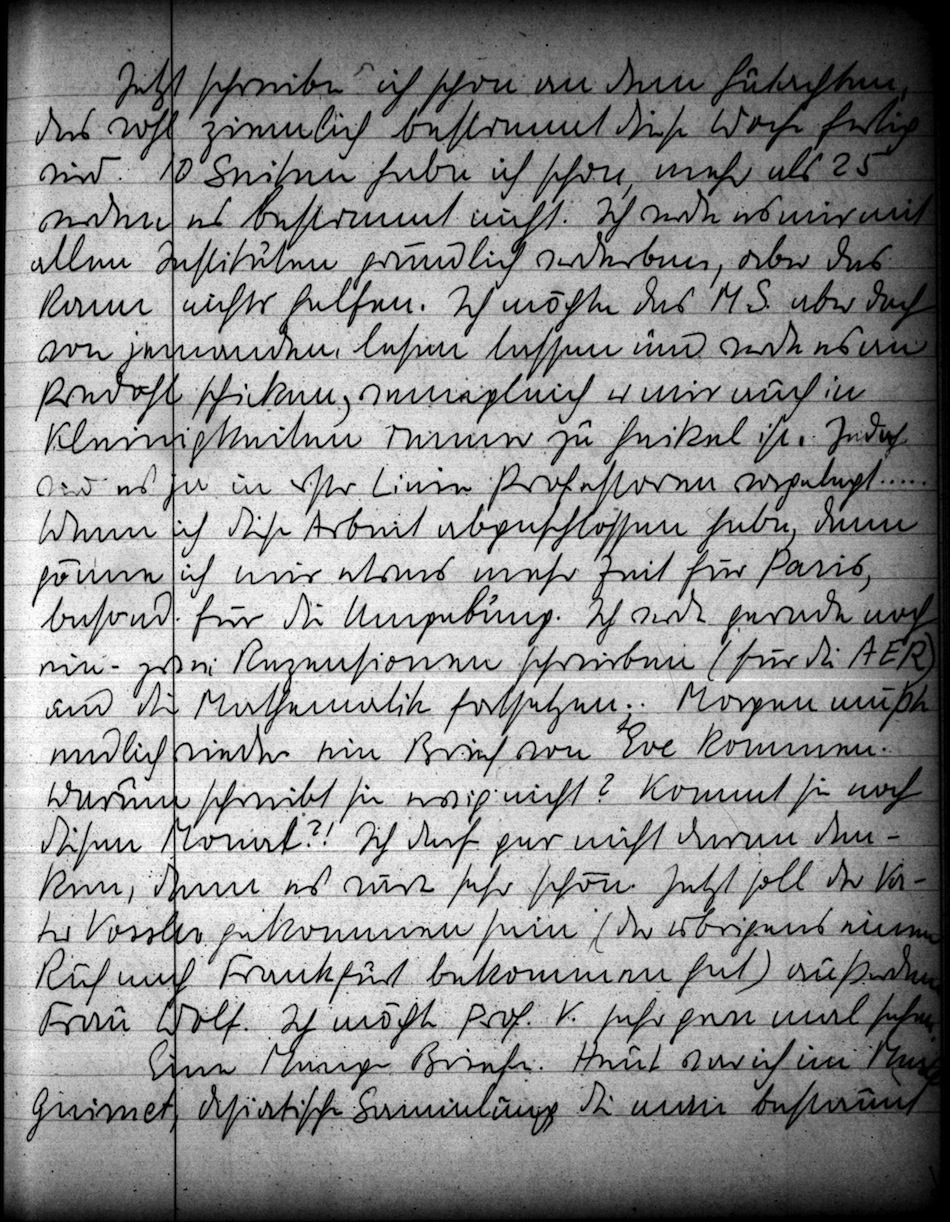 Jetzt schreibe ich schon an dem Gutachten,
das wohl ziemlich bestimmt diese Woche fertig
wird. 10 Seiten habe ich schon, mehr als 25
werden es bestimmt nicht. Ich werde es mir mit
allen Instituten gründlich verderben, aber das
kann nichts helfen. Ich möchte das M.S. aber doch
von jemanden lesen lassen und werde es an
Predöhl schicken, wenngleich er mir auch in
Kleinigkeiten immer zu heikel ist. Jedoch
wird es ja in erster Linie Professoren vorgelegt.....
Wenn ich diese Arbeit abgeschlossen habe, dann
gönne ich mir etwas mehr Zeit für Paris,
besond. für die Umgebung. Ich werde gerade noch
ein - zwei Rezensionen schreiben (für die AER)
und die Mathematik fortsetzen.. Morgen müsste
endlich wieder ein Brief von Eve kommen.
Warum schreibt sie ewig nicht? Kommt sie noch
diesen Monat?! Ich darf gar nicht daran den-
ken, denn es wäre sehr schön. Jetzt soll der Va-
ter Vossler gekommen sein (der übrigens einen
Ruf nach Frankfurt bekommen hat) außerdem
Frau Wolf. Ich möchte Prof. V. sehr gern mal sehen.
Eine Menge Briefe. Heute war ich im
Guimet, asiatische Sammlung, die man bestaunt